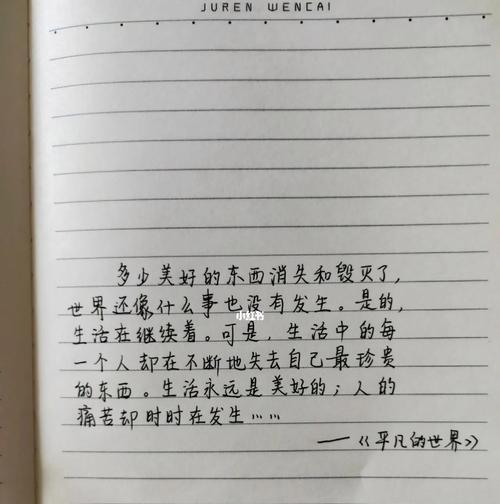 JUREN WENCAI
多少美好的东西消失和毁灭了，
世界还像什么事也没有发生。是的，
小红书
生活在继续着。可是，生活中的每
一个人却在不断地失去自己最珍贵
的东西。生活永远是美好的；人的
痛苦却时时在发生……
——《平凡的世界》